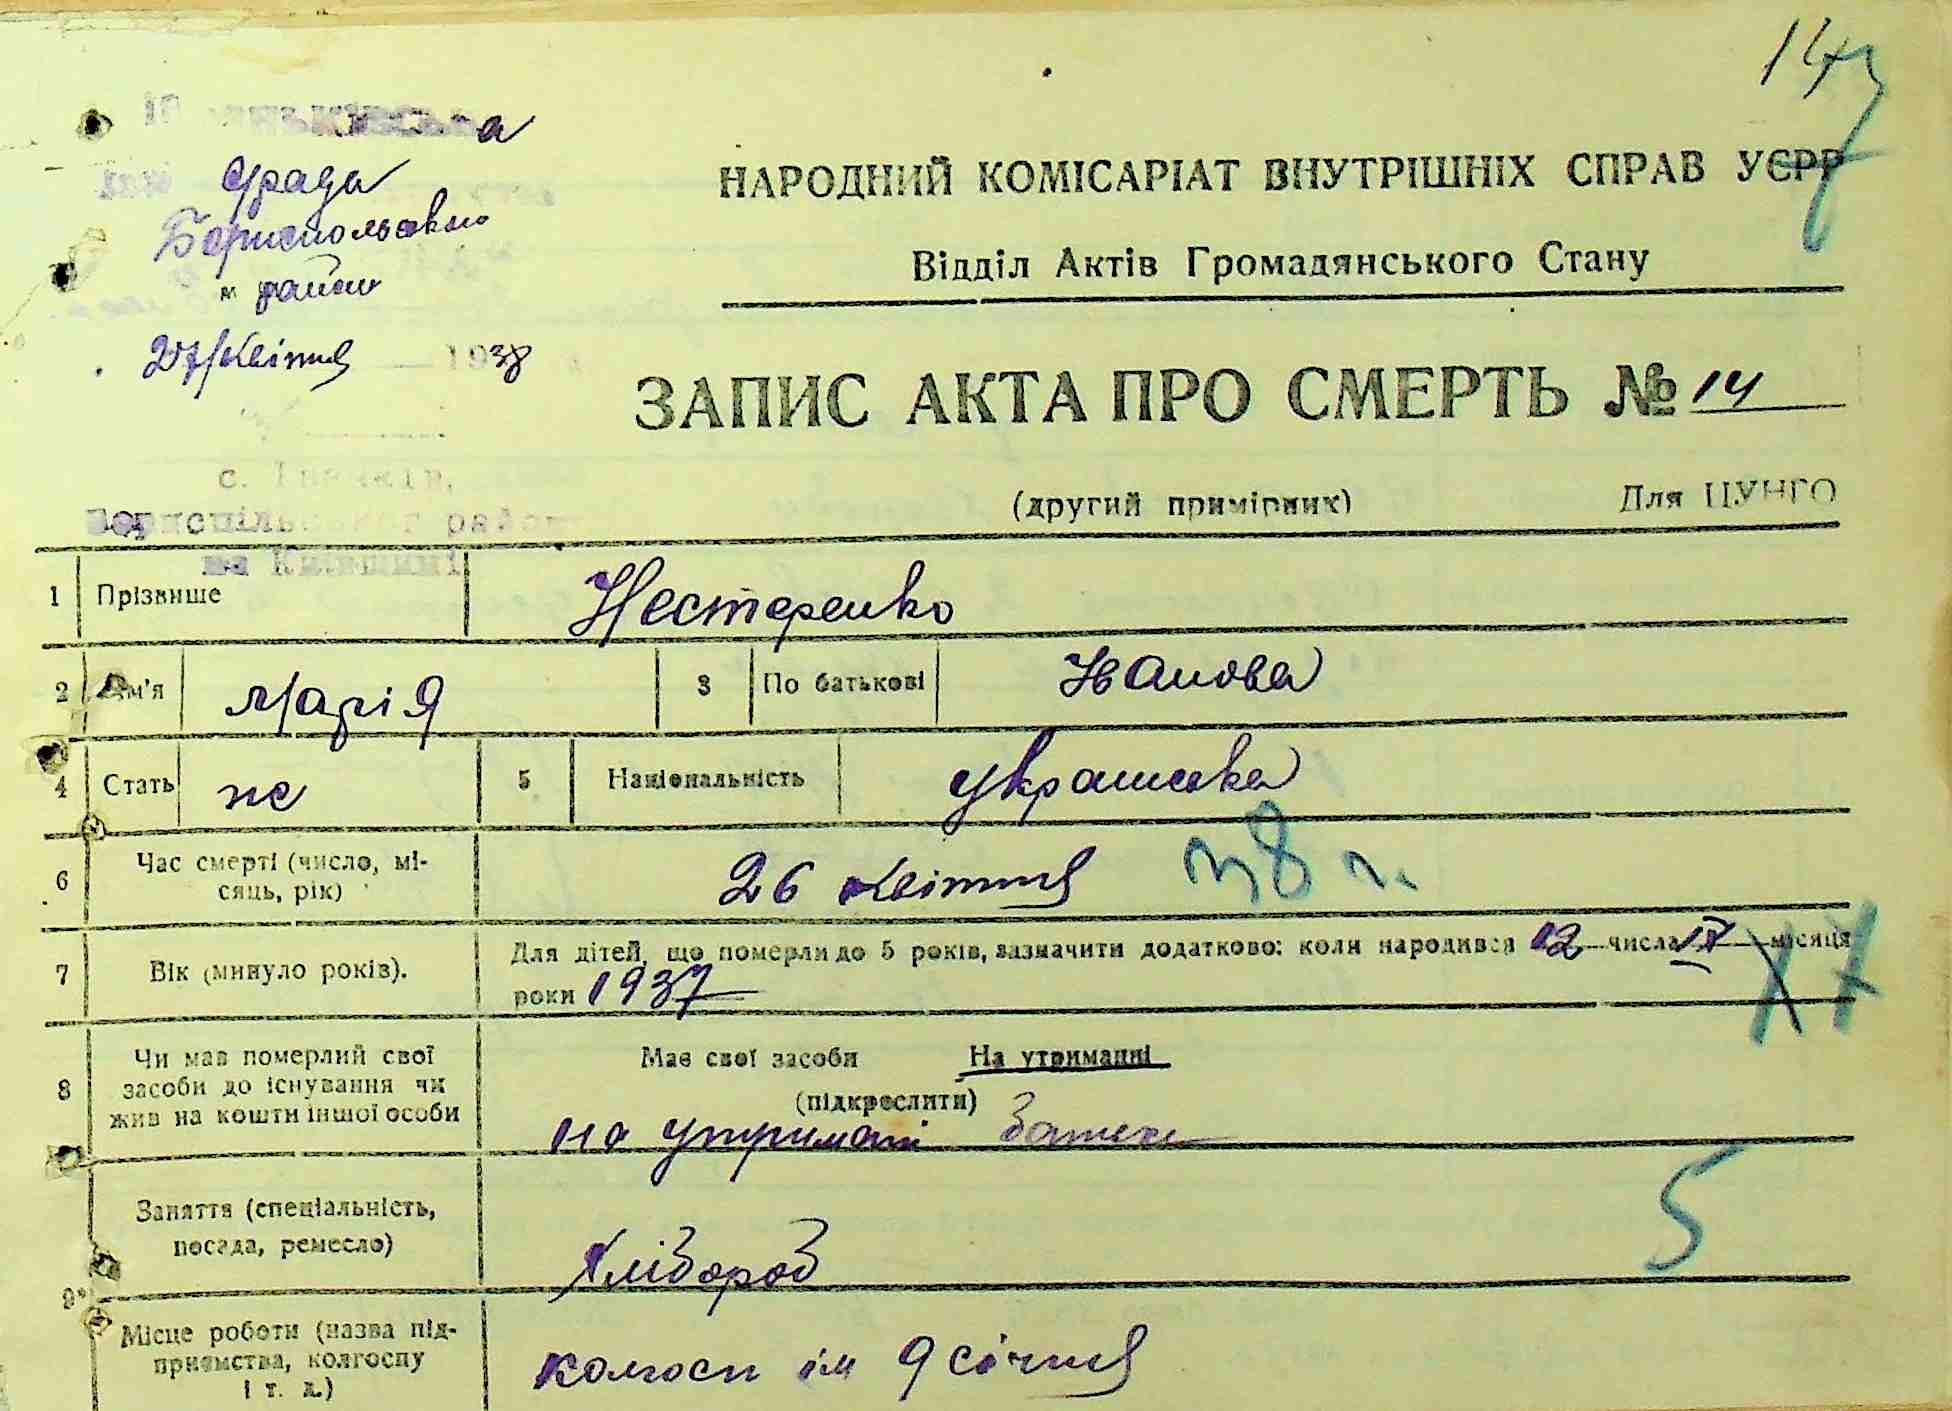 147
срада
Бориспольського
району
27/Квітня 1938
НАРОДНИЙ КОМІСАРІАТ ВНУТРІШНІХ СПРАВ УСРР
Відділ Актів Громадянського Стану
ЗАПИС АКТА ПРО СМЕРТЬ № 14
(другий примірник) Для ЦУНГО
с. Іванків,
Бориспільського району
на Київщині
1 Прізвище Нестеренко
2 Ім'я Марія 3 По батькові Іванова
4 Стать ж 5 Національність Українка
6 Час смерті (число, мі-
сяць, рік) 26 Квітня 38 г.
7 Вік (минуло років). Для дітей, що померли до 5 років, зазначити додатково: коли народився 12 числа IV місяця
роки 1937
8 Чи мав померлий свої
засоби до існування чи
жив на кошти іншої особи
Має свої засоби На утриманні
(підкреслити)
на утримані батьки
5
9 Заняття (спеціальність,
посада, ремесло) Хлібороб
Місце роботи (назва під-
приємства, колгоспу
і т. д.) колгосп ім 9 січня